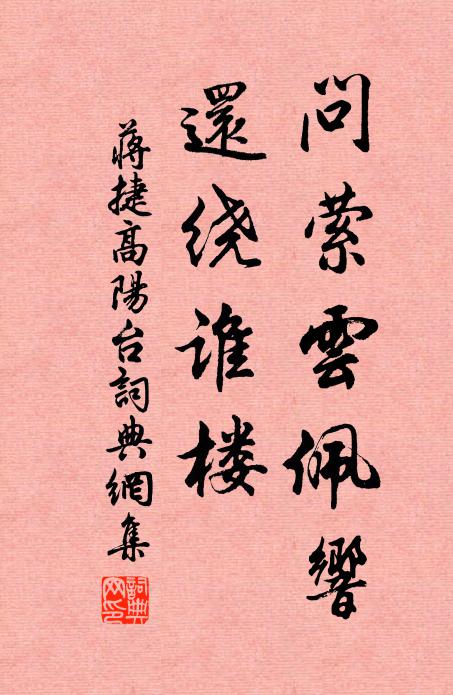 問萦雲佩響
還绕谁楼
蒋捷高陽台詞典網集
詞典網印